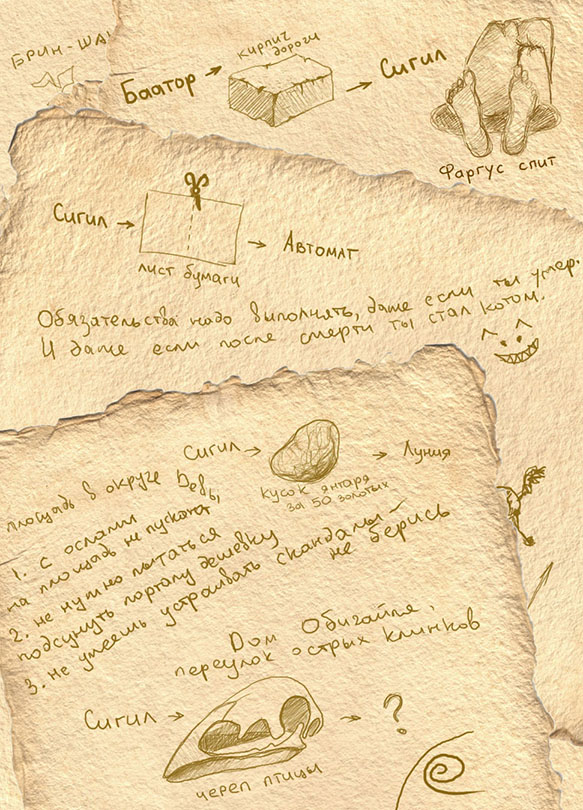 БРИН-ША
Баатор → кирпич дороги → Сигил
Фаргус спит
Сигил → лист бумаги → Автомат
Обязательства надо выполнять, даже если ты умер.
И даже если после смерти ты стал котом.
Сигил → кусок янтаря за 50 золотых → Луния
площадь в округе Деб,
1. с ослами
на площадь не пускают
2. не нужно пытаться
подсунуть порталу дешевку
3. не умеешь устраивать скандалы –
не берись
Дом Обигайля,
переулок острых клинков
Сигил → череп птицы → ?